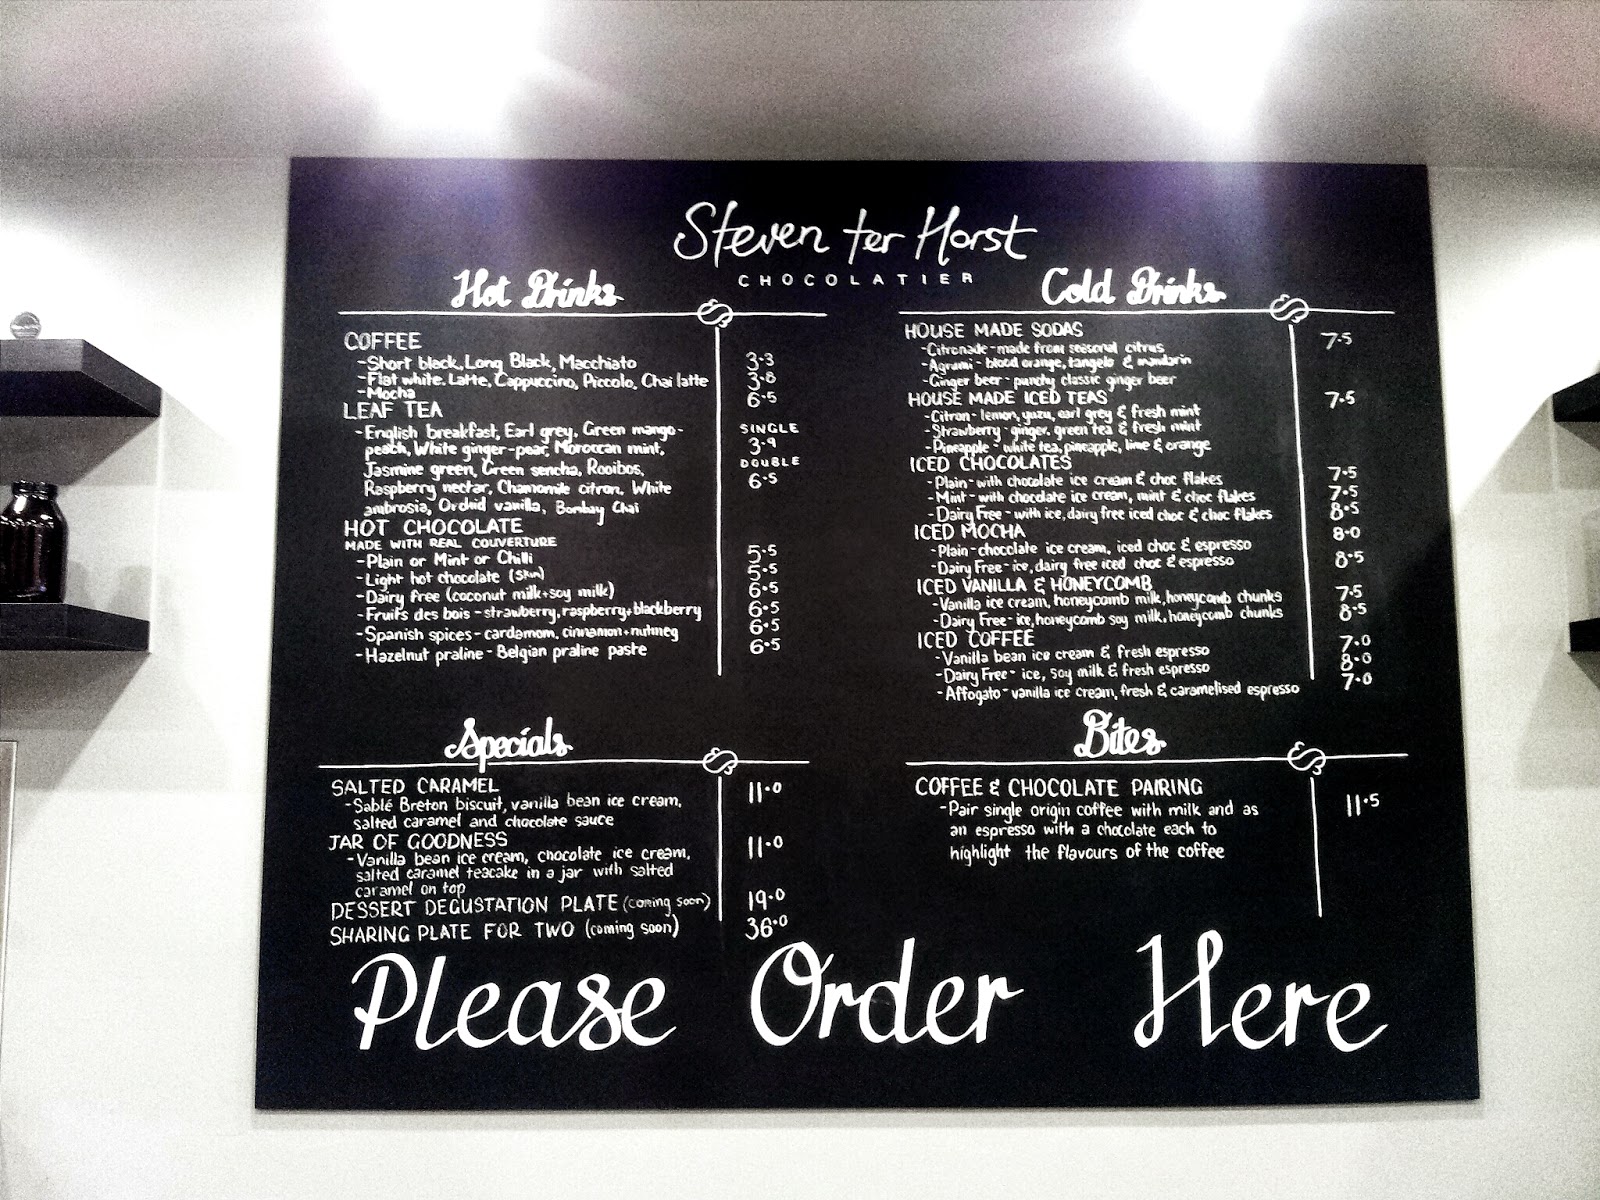 Steven ter Horst
CHOCOLATIER
Hot Drinks
COFFEE
-Short black, Long Black, Macchiato 3.3
-Flat white, Latte, Cappuccino, Piccolo, Chai latte 3.8
-Mocha 6.5
LEAF TEA
-English breakfast, Earl grey, Green mango- SINGLE
peach, White ginger-pear, Moroccan mint, 3.9
Jasmine green, Green sencha, Rooibos, DOUBLE
Raspberry nectar, Chamomile citron, White 6.5
ambrosia, Orchid vanilla, Bombay Chai
HOT CHOCOLATE
MADE WITH REAL COUVERTURE
-Plain or Mint or Chilli 5.5
-Light hot chocolate (skim) 5.5
-Dairy free (coconut milk+soy milk) 6.5
-Fruits des bois-strawberry, raspberry+blackberry 6.5
-Spanish spices-cardamom, cinnamon+nutmeg 6.5
-Hazelnut praline-Belgian praline paste 6.5
Cold Drinks
HOUSE MADE SODAS 7.5
-Citronade-made from seasonal citrus
-Agrumi-blood orange, tangelo & mandarin
-Ginger beer-punchy classic ginger beer
HOUSE MADE ICED TEAS 7.5
-Citron-lemon, yuzu, earl grey & fresh mint
-Strawberry-ginger, green tea & fresh mint
-Pineapple-white tea, pineapple, lime & orange
ICED CHOCOLATES
-Plain-with chocolate ice cream & choc flakes 7.5
-Mint-with chocolate ice cream, mint & choc flakes 7.5
-Dairy Free-with ice, dairy free iced choc & choc flakes 8.5
ICED MOCHA
-Plain-chocolate ice cream, iced choc & espresso 8.0
-Dairy Free-ice, dairy free iced choc & espresso 8.5
ICED VANILLA & HONEYCOMB
-Vanilla ice cream, honeycomb milk, honeycomb chunks 7.5
-Dairy Free-ice, honeycomb soy milk, honeycomb chunks 8.5
ICED COFFEE
-Vanilla bean ice cream & fresh espresso 7.0
-Dairy Free-ice, soy milk & fresh espresso 8.0
-Affogato-vanilla ice cream, fresh & caramelised espresso 7.0
Specials
SALTED CARAMEL 11.0
-Sablé Breton biscuit, vanilla bean ice cream,
salted caramel and chocolate sauce
JAR OF GOODNESS 11.0
-Vanilla bean ice cream, chocolate ice cream,
salted caramel teacake in a jar with salted
caramel on top
DESSERT DEGUSTATION PLATE (coming soon) 19.0
SHARING PLATE FOR TWO (coming soon) 36.0
Bites
COFFEE & CHOCOLATE PAIRING 11.5
-Pair single origin coffee with milk and as
an espresso with a chocolate each to
highlight the flavours of the coffee
Please Order Here